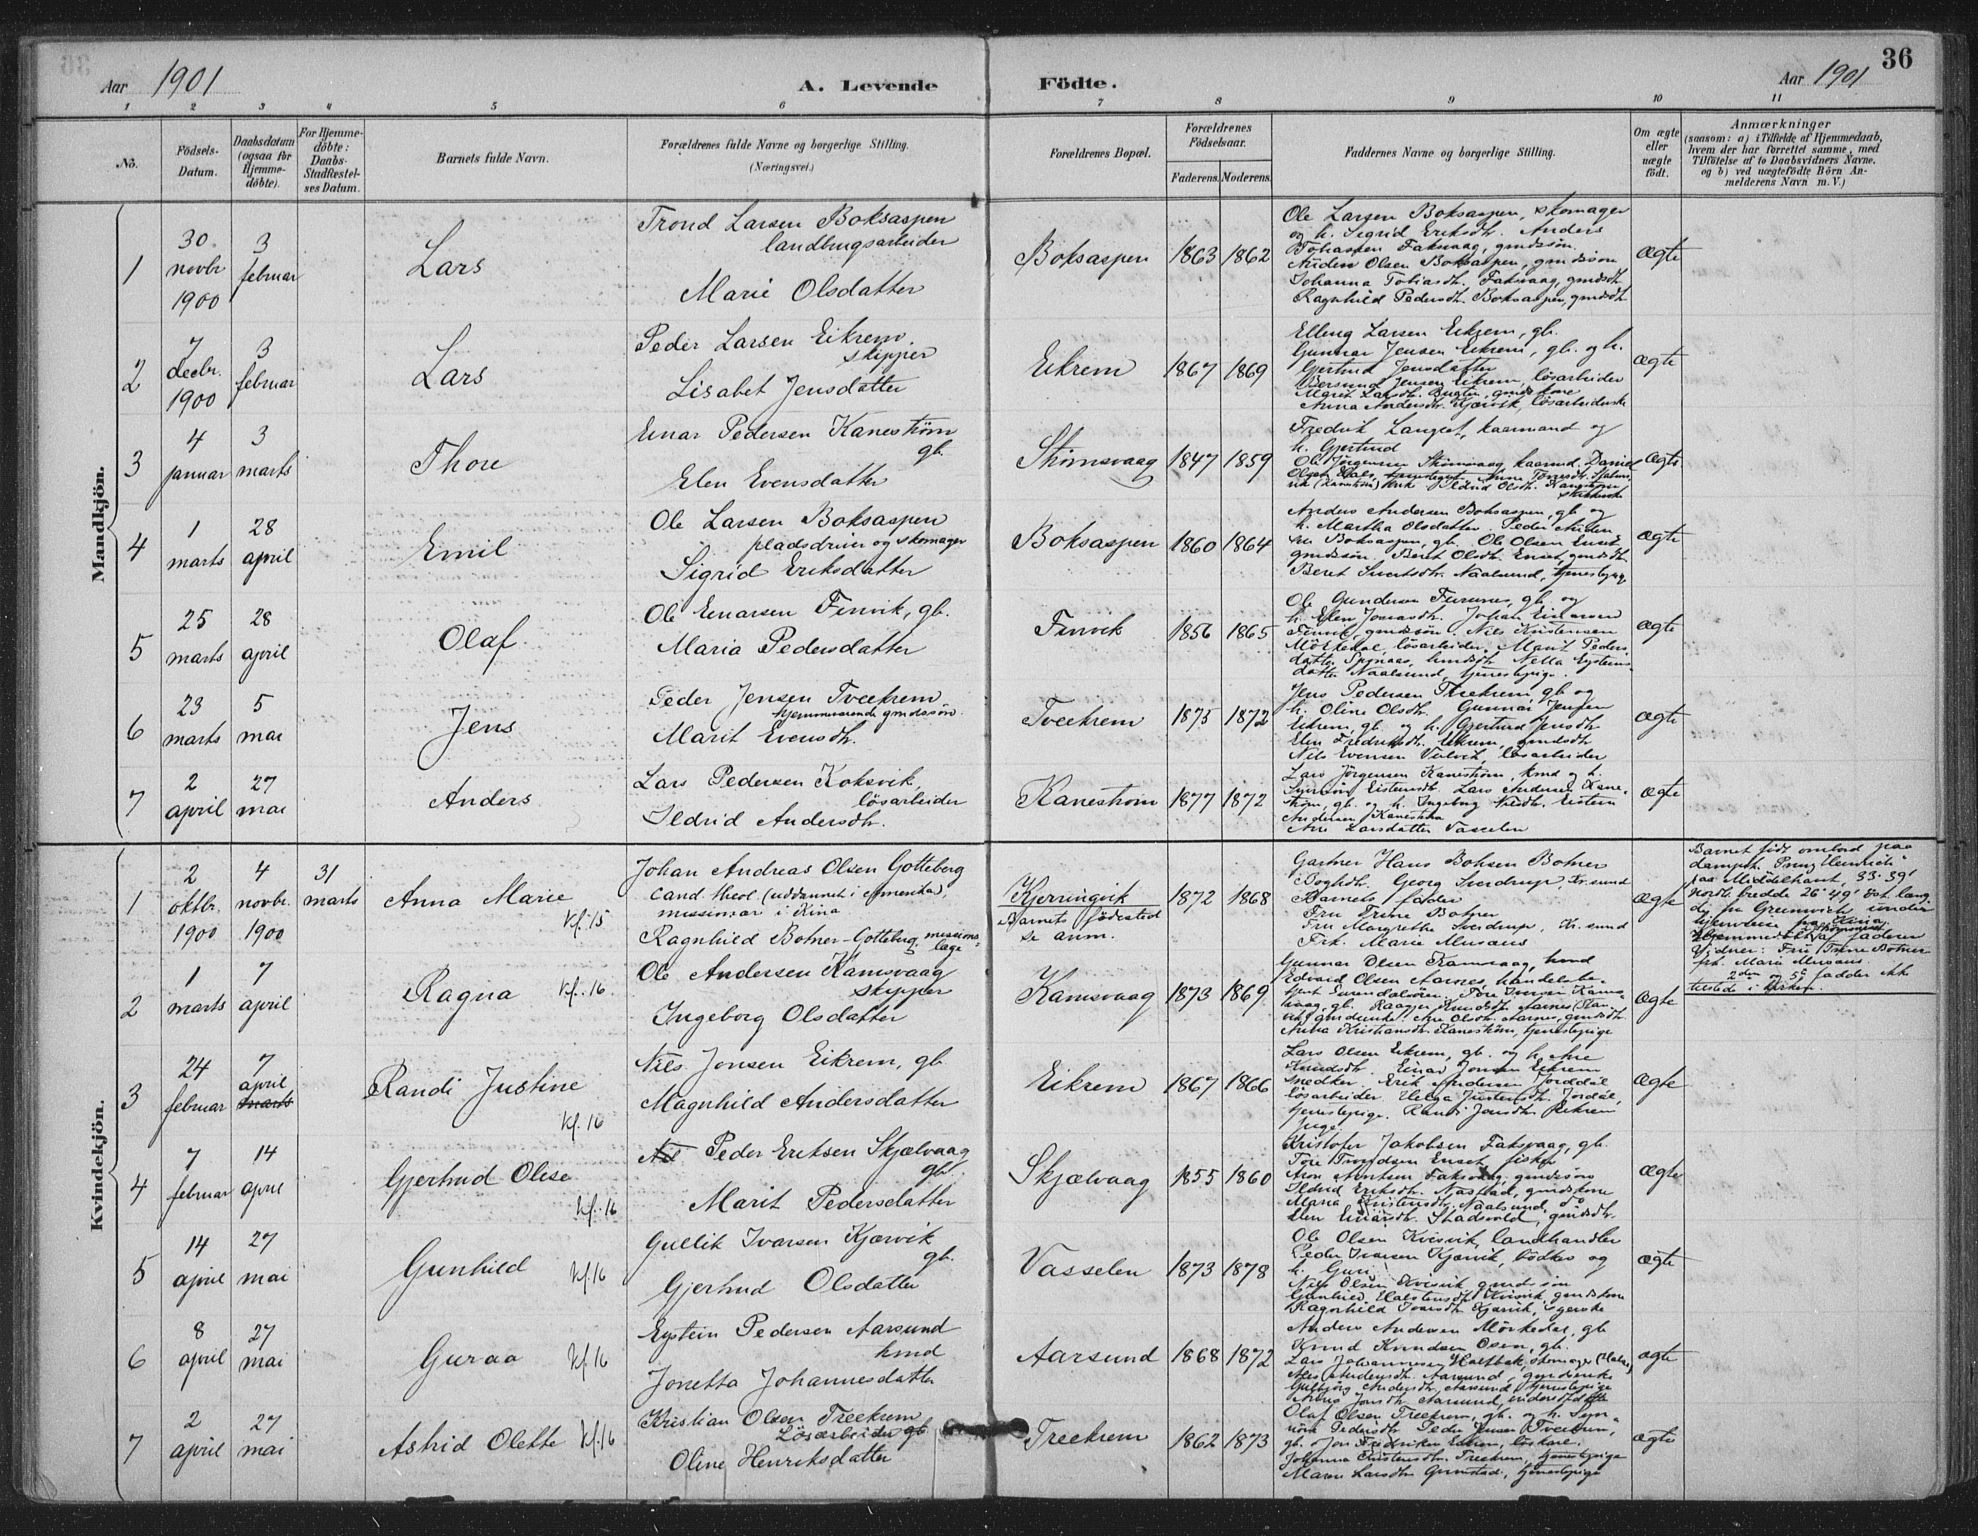 36
Aar 1901
A. Levende
Födte.
Aar 1901
1 2 3 4 5 6 7 8 9 10 11
No.
Födsels-Datum.
Daabsdatum (ogsaa for Hjemme-döbte).
For Hjemme-döbte: Daabs-Stadfæstel-ses Datum.
Barnets fulde Navn.
Forældrenes fulde Navne og borgerlige Stilling.
(Næringsvei.)
Forældrenes Bopæl.
Forældrenes Födselsaar.
Faderens. Moderens.
Faddernes Navne og borgerlige Stilling.
Om ægte eller uægte födt.
Anmærkninger
(saasom: a) i Tilfælde af Hjemmedaab, hvem der har forrettet samme, med Tilföielse af to Daabsvidners Navne. og b) ved uægtefödte Börn An-melderens Navn m. V.)
Mandkjön.
1
30 novbr 1900
3 februar
Lars
Trond Larsen Boksaspen
landbrugsarbeider
Marie Olsdatter
Boksaspen
1863 1862
Ole Larsen Boksaspen, skomager
og h. Sigrid Eriksdt. Anders
Tobiassen Faksvaag, gmdssön.
Anders Olsen Boksaspen, gmdssön
Johanna Tobiasdt. Faksvaag, gmdsdt.
Ragnhild Pedersdt. Boksaspen, gmdsdt
ægte
2
7 decbr. 1900
3 februar
Lars
Peder Larsen Eikrem.
skipper
Lisabet Jensdatter
Eikrem
1867 1869
Elling Larsen Eikrem, gb.
Gunnar Jensen Eikrem, gb. og h.
Gjertrud Jensdatter
Jensen Eikrem, lösarbeider
Marit Larsdt.
Anna Andersdt. Kjörvik, lösarbeiderske
ægte
3
4 januar
3 marts
Thore
Einar Pedersen Kaneström
gb.
Elen Evensdatter
Strömsvaag
1847 1859
Fredrik Langset, kaarmand og
h. Gjertrud
Ole Jörgensen Strömsvaag, kaarmd. Daniel
Ildrid Olsdt. Kaneström
ægte
4
1 marts
28 april
Emil
Ole Larsen Boksaspen
pladsdriver og skomager
Sigrid Eriksdatter
Boksaspen
1860 1864
Anders Andersen Boksaspen, gb og
h. Martha Olsdatter. Peder Ander-
sen Boksaspen, gb. Ole Olsen Enset
gmdssön. Beret Olsdt. Enset, gmdsdt.
Beret Sivertsdt. Naalsund, tjenestepige
ægte
5
25 marts
28 april
Olaf
Ole Einarsen Finvik, gb.
Maria Pedersdatter
Finvik
1856 1865
Ole Gundersen Furunes, gb og
h. Elen Jonasdt. Johan Einarsen
Finvik, gmdssön. Nils Kristensen
Mörkedal, lösarbeider. Marit Peders-
datter
datter Naalsund, tjenestepige.
ægte
6
23 marts
5 mai
Jens
Peder Jensen Tveekrem
hjemmeværende gmdssön.
Marit Evensdt.
Tveekrem
1873 1872
Jens Pedersen Tveekrem, gb og
h. Oline Olsdt. Gunnar Jensen
Eikrem, gb. og h. Gjertrud Jensdt.
Elen Fredriksdt. Eikrem, gmdsdt
Nils Evensen Vulvik, lösarbeider
ægte
7
2 april
27 mai
Anders
Lars Pedersen Koksvik
lösarbeider
Ildrid Andersdt.
Kaneström
1877 1872
Lars Jörgensen Kaneström, kmd og h.
Lars Andersen Kane-
ström, gb. og h. Ingeborg
Andersen Kaneström
Ane Larsdatter Vasselen
ægte
Kvindekjön.
1
2 oktbr. 1900
4 novbr. 1900
31 marts
Anna Marie
kf. 15
Johan Andreas Olsen Gotteberg
cand. theol. (uddannet i Amerika),
missionær i Kina
Ragnhild Botner-Gotteberg, missions-
læge
Kjerringvik
Barnets födested
se anm.
1872 1868
Gartner Hans Bohsen Botner
Georg Sverdrup, Kr.sund
Barnets fader
Fru Trine Botner
Fru Margrethe Sverdrup, Kr.sund
Frk. Marie Musaus
ægte
Barnet födt ombord paa
dampsk. "Prinz Heinrich"
paa Middelhavet, 33° 39'
nordl. bredde 26° 49' öst. læng-
de fra Greenwich under
hjemreise fra Kina.
Hjemmedöbt af faderen
Vidner: Fru Trine Botner
frk. Marie Musaus.
2den og 5te fadder ikke
tilstede i kirken.
2
1 marts
7 april
Ragna
kf. 16
Ole Andersen Kamsvaag
skipper
Ingeborg Olsdatter
Kamsvaag
1873 1869
Gunnar Olsen Kamsvaag, kmd
Edvard Olsen Aarnes, handelsbe-
Tore Iversen Kams-
vaag, gb. Knudsdt. Aarnes
Ane Olsdt. Aarnes, gmdsdt.
Anna Kristiansdt. Kaneström, tjenestepige
ægte
3
24 februar
7 april
Randi Justine
kf. 16
Nils Jonsen Eikrem, gb.
Magnhild Andersdatter
Eikrem
1867 1866
Lars Olsen Eikrem, gb. og h. Ane
Knudsdt. Einar Jonsen Eikrem
snedker. Erik Andersen Jordal,
lösarbeider. Helga Justensdt. Jordal,
tjenestepige. Randi Jonsdt. Eikrem
pige
ægte
4
7 februar
14 april
Gjertrud Oline
kf. 16
Peder Eriksen Skjælvaag
gb.
Marit Pedersdatter
Skjælvaag
1855 1860
Kristofer Jakobsen Faksvaag, gb.
Tore Trondsen Enset, fisker
Aron Arntsen Faksvaag, gmdssön
Ildrid Eriksdt. Nastad, gmdskone
Maria Kristensdt. Naalsund, do
Elen Einarsdt. Stadsvold, gmdsdt.
ægte
5
14 april
27 mai
Gunhild
kf. 16
Gullik Ivarsen Kjörvik
gb.
Gjertrud Olsdatter
Vasselen
1873 1878
Ole Olsen Kvisvik, landhandler
Peder Ivarsen Kjörvik, bödker og
h. Guri
Nils Olsen Kvisvik, gmdssön
Gunhild Halstensdt. Kvisvik, gmdskone
Ragnhild Ivarsdt. Kjörvik, syerske
ægte
6
8 april
27 mai
Guraa
kf. 16
Eystein Pedersen Aarsund
kmd
Jonetta Johannesdatter
Aarsund
1868 1872
Anders Andersen Mörkedal, gb
Knud Knudsen Osen, gb.
Lars Johannessen skomager
Andersdt. Aarsund, gmdsenke
Andersdt. Aarsund, tjenestepige
Jonsdt. Aarsund,
ægte
7
2 april
27 mai
Astrid Olette
kf. 16
Kristian Olsen Treekrem
Lösarbeider gb
Oline Henriksdatter
Treekrem
1862 1873
Olaf Olsen Treekrem, gb. og h. Syn-
növe Pedersdt. Peder Jensen Tveekrem,
gb. Jon Fredriksen Eikrem,
Johanna Kristensdt. Treekrem, tjenestepige
Maren Larsdt. Grimstad, tjenestepige
ægte